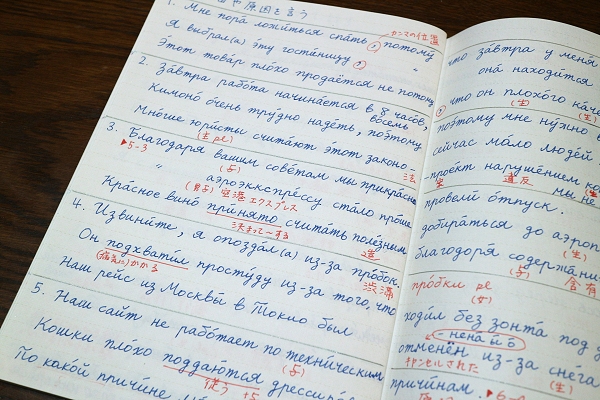 原因を言う
1. Мне пора́ ложи́ться спать, потому́
カンマの位置
Я вы́брал(а) э́ту гости́ницу,
Э́тот това́р пло́хо продаётся не потому́
2. За́втра рабо́та начина́ется в 8 часо́в,
во́семь
Кимоно́ о́чень тру́дно наде́ть, поэ́тому
Мно́гие юри́сты счита́ют э́тот законо-
3. Благодаря́ ва́шим сове́там мы прикра́сно
(生 pl)
▶5-3
аэроэкспре́ссу ста́ло про́ще
(男子) 空港エクスプレス
Кра́сное вино́ при́нято счита́ть поле́зным
決まって〜する
4. Извини́те, я опозда́л(а) из-за про́бок,
渋滞
Он подхвати́л просту́ду из-за того́, что
(病気に)かかる
Наш рейс из Москвы́ в То́кио был
5. Наш сайт не рабо́тает по техни́ческим
Ко́шки пло́хо поддаю́тся
По како́й причи́не
что за́втра у меня́
она́ нахо́дится
что он плохо́го ка́че
(生)
поэ́тому мне ну́жно в
сейча́с ма́ло люде́й.
прое́кт наруше́нием
違反
мы не
провели́ о́тпуск.
добира́ться до аэроп
(生)
благодоря́ содержа́ни
含有
про́бки pl
(女)
ходи́л без зонта́ под
отменён из-за сне́га
キャンセルされた
(生)
причи́нам.